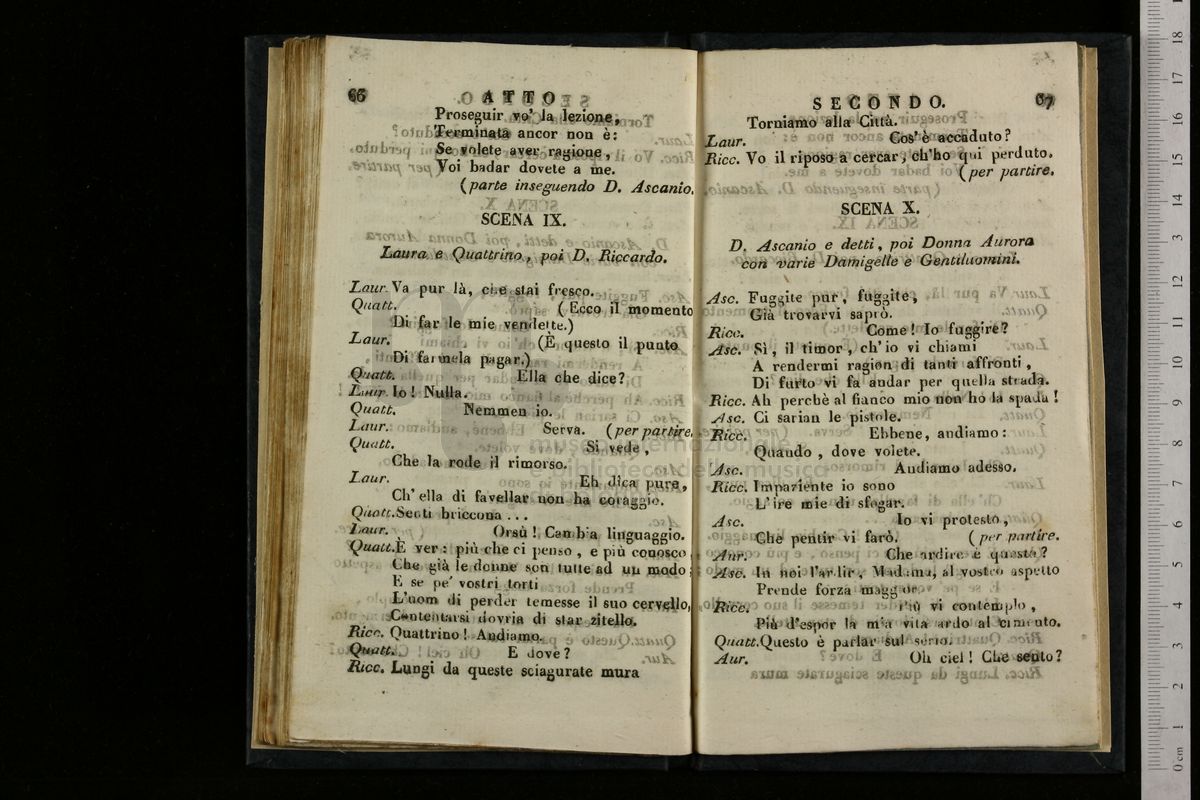 66
ATTO
Proseguir vo' la lezione,
Terminata ancor non è:
Se volete aver ragione,
Voi badar dovete a me.
(parte inseguendo D. Ascanio.
SCENA IX.
Laura e Quattrino, poi D. Riccardo.
Laur. Va pur là, che stai fresco.
Quatt. (Ecco il momento
Di far le mie vendette.)
Laur. (È questo il punto
Di farmela pagar.)
Quatt. Ella che dice?
Laur. Io! Nulla.
Quatt. Nemmen io.
Laur. Serva. (per partire.
Quatt. Si vede,
Che la rode il rimorso.
Laur. Eh dica pure,
Ch' ella di favellar non ha coraggio.
Quatt. Senti briccona ...
Laur. Orsù! Cambia linguaggio.
Quatt. È ver: più che ci penso, e più conosco
Che già le donne son tutte ad un modo;
E se pe' vostri torti
L'uom di perder temesse il suo cervello,
Contentarsi dovria di star zitello.
Ricc. Quattrino! Andiamo.
Quatt. E dove?
Ricc. Lungi da queste sciagurate mura
SECONDO.
67
Torniamo alla Città.
Laur. Cos'è accaduto?
Ricc. Vo il riposo a cercar, ch'ho qui perduto.
(per partire.
SCENA X.
D. Ascanio e detti, poi Donna Aurora
con varie Damigelle e Gentiluomini.
Asc. Fuggite pur, fuggite,
Già trovarvi saprò.
Ricc. Come! Io fuggire?
Asc. Sì, il timor, ch' io vi chiami
A rendermi ragion di tanti affronti,
Di furto vi fa andar per quella strada.
Ricc. Ah perchè al fianco mio non ho la spada!
Asc. Ci sarian le pistole.
Ricc. Ebbene, andiamo:
Quando, dove volete.
Asc. Andiamo adesso.
Ricc. Impaziente io sono
L' ire mie di sfogar.
Asc. Io vi protesto,
Che pentir vi farò. (per partire.
Aur. Che ardire è questo?
Asc. In noi l'ardir, Madama, al vostro aspetto
Prende forza maggior.
Ricc. Più vi contemplo,
Più d'espor la mia vita ardo al cimento.
Quatt. Questo è parlar sul serio.
Aur. Oh ciel! Che sento?
museo internazionale
e biblioteca della musica
0 cm 1 2 3 4 5 6 7 8 9 10 11 12 13 14 15 16 17 18